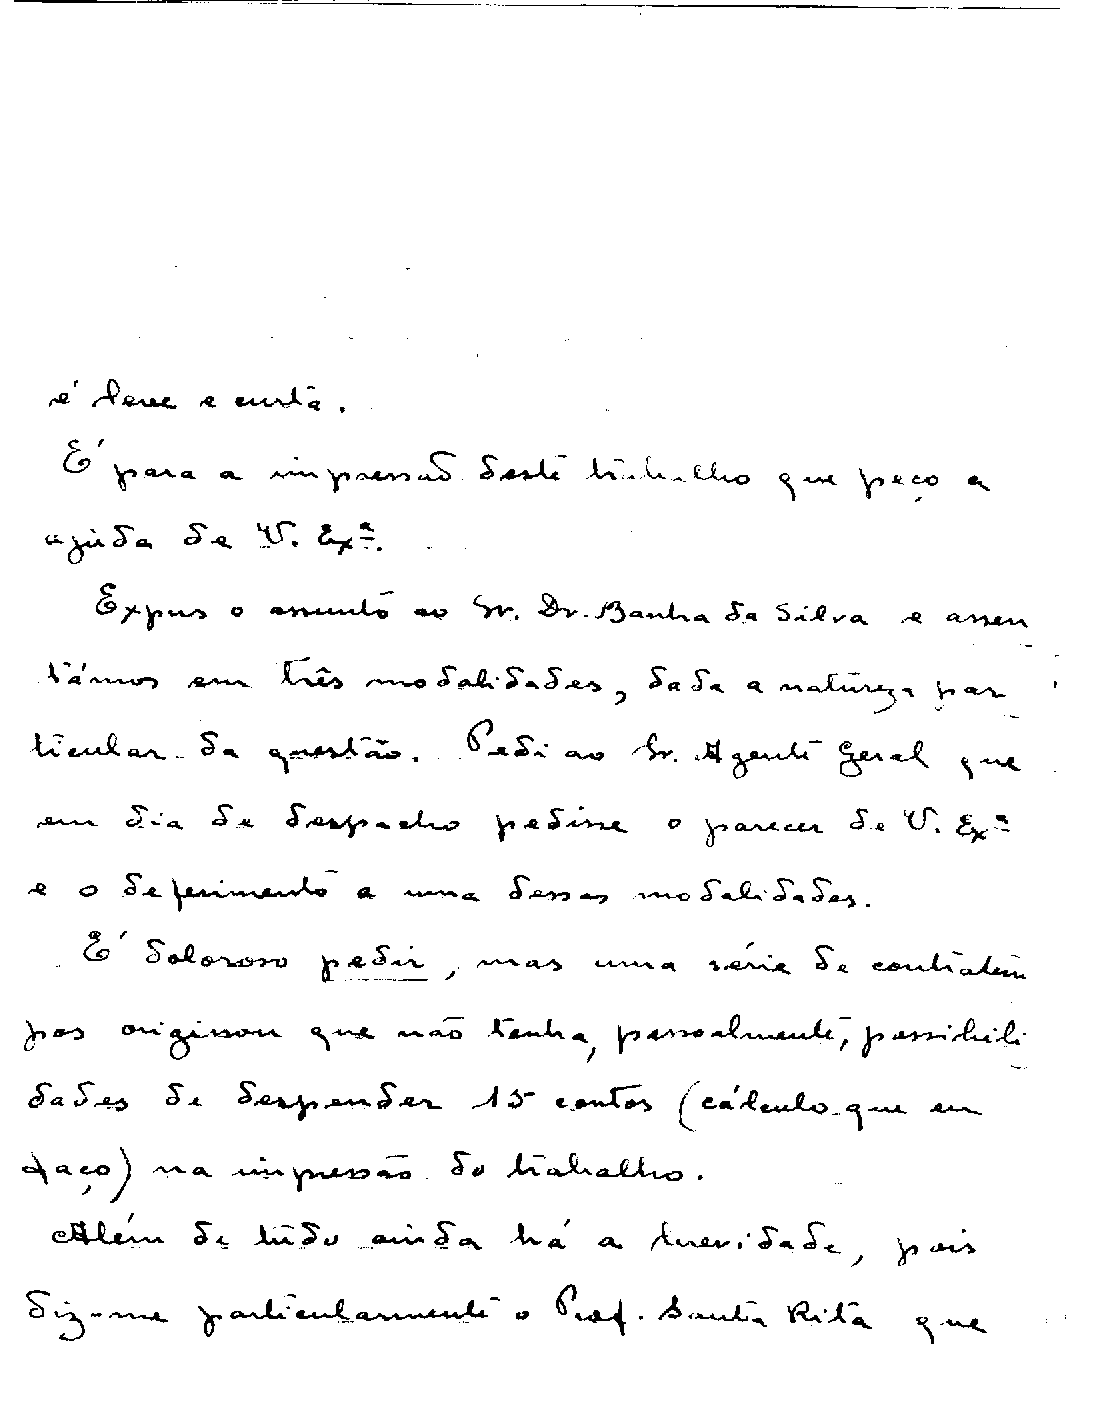 é leve e curta.
É para a impressão deste trabalho que peço a
ajuda de V. Exª.
Expus o assunto ao Sr. Dr. Banha da Silva e assen
támos em três modalidades, dada a natureza par
ticular da questão. Pedi ao Sr. Agente Geral que
em dia de despacho pedisse o parecer de V. Exª
e o deferimento a uma dessas modalidades.
É doloroso pedir, mas uma série de contratem
pos originou que não tenha, pessoalmente, possibili
dades de despender 15 contos (cálculo que eu
faço) na impressão do trabalho.
Além de tudo ainda há a brevidade, pois
diz-me particularmente o Prof. Santa Rita que